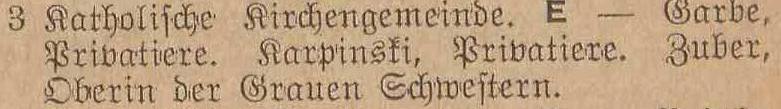 3 Katholiſche Kirchengemeinde. E — Garbe,
Privatiere. Karpinski, Privatiere. Zuber,
Oberin der Grauen Schweſtern.